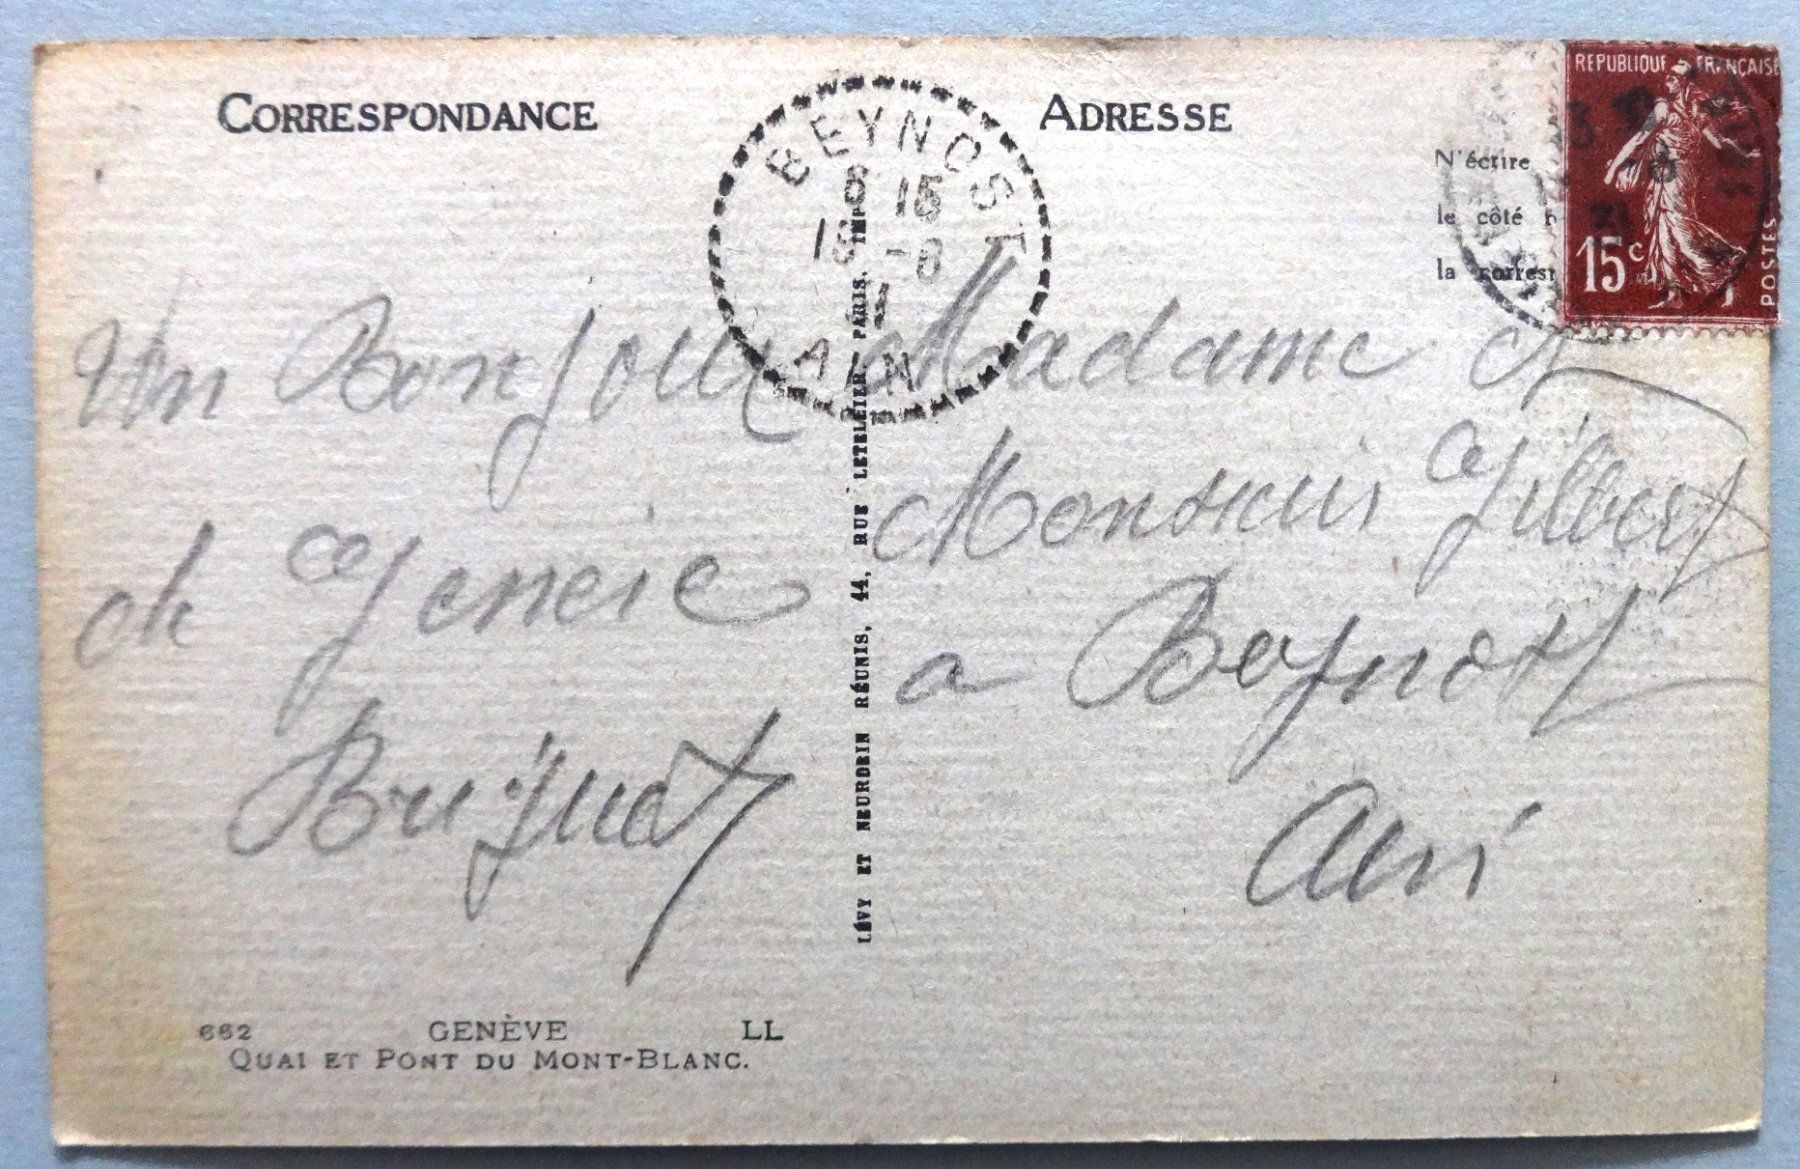 CORRESPONDANCE
ADRESSE
REPUBLIQUE FRANÇAISE
15c
POSTES
N'écrire
le côté
la corres
BEYNOST
15
AIN
Un Bonjour
de Geneve
Madame et
Monsieur Gilbert
a Beynost
Ain
LÉVY ET NEURDEIN RÉUNIS, 44, RUE LETELLIER, PARIS. IMP
662 GENÈVE LL
QUAI ET PONT DU MONT-BLANC.